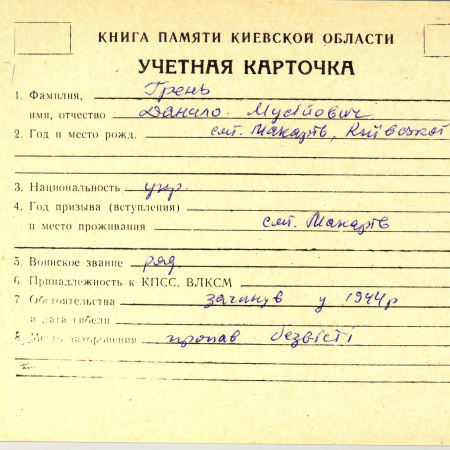 КНИГА ПАМЯТИ КИЕВСКОЙ ОБЛАСТИ
УЧЕТНАЯ КАРТОЧКА
1. Фамилия, Грень
имя, отчество Данило Мусійович
2. Год и место рожд. смт. Макарів, Київської
3. Национальность укр.
4. Год призыва (вступления)
и место проживания смт. Макарів
5. Воинское звание ряд
6. Принадлежность к КПСС, ВЛКСМ
7 Обстоятельства загинув у 1944р
и дата гибели
8. Место захоронения пропав безвісті